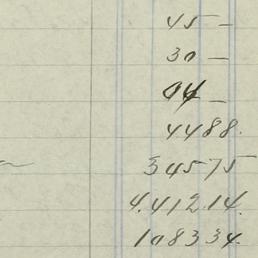 45 —
30 —
04 —
4488.
34575
4.412.14.
108334.